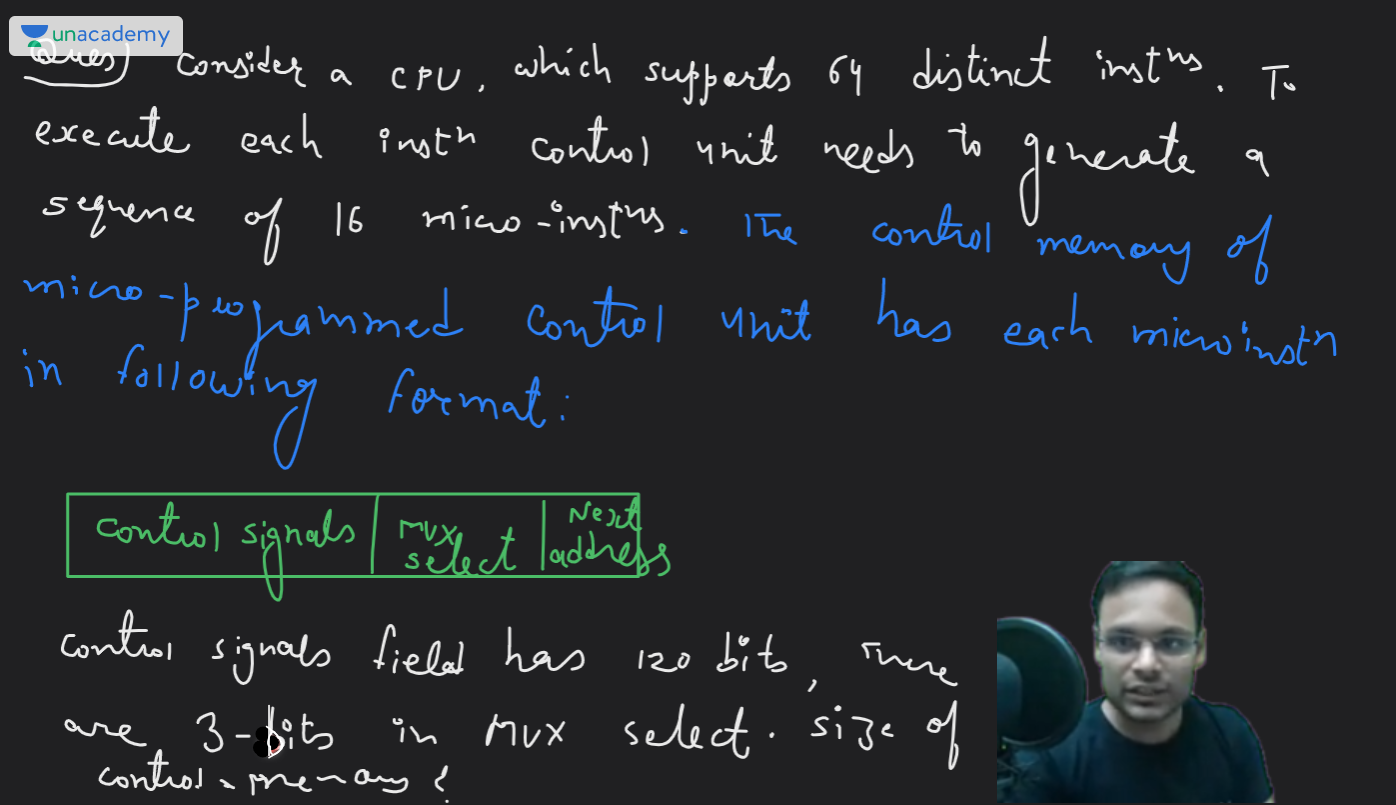 unacademy
Ques) Consider a CPU, which supports 64 distinct instⁿs. To
execute each instⁿ control unit needs to generate a
sequence of 16 micro-instⁿs. The control memory of
micro-programmed control unit has each microinstⁿ
in following format:
control signals | MUX select | Next address
control signals field has 120 bits, There
are 3-bits in MUX select. size of
control memory?